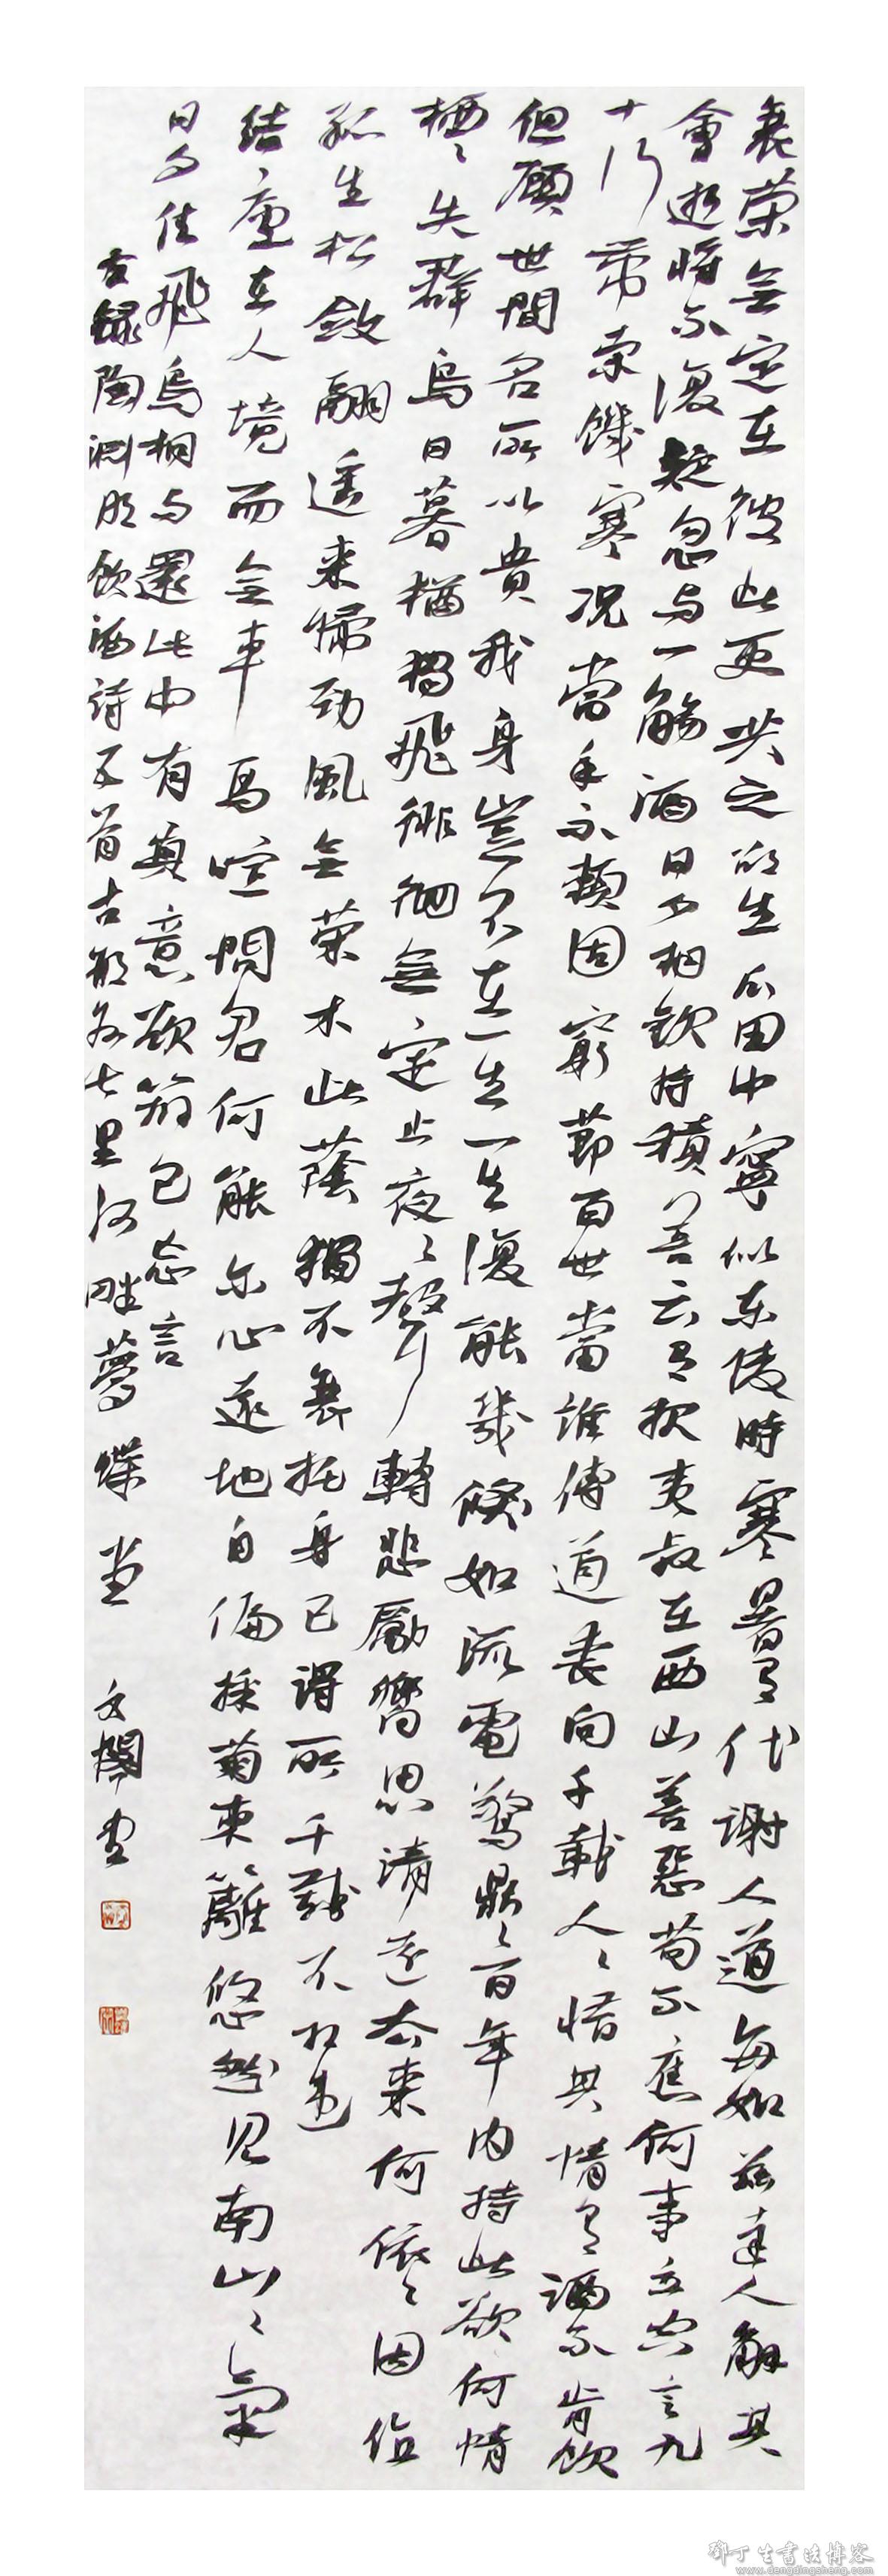 衰榮無定在彼此更共之邵生瓜田中寧似東陵時寒暑有代謝人道每如茲達人解其
會逝將不復疑忽與一觴酒日夕相歡持積善云有報夷叔在西山善惡苟不應何事立空言九
十行帶索饑寒況當年不賴固窮節百世當誰傳道喪向千載人〻惜其情有酒不肯飲
但顧世間名所以貴我身豈不在一生一生復能幾倏如流電驚鼎〻百年內持此欲何情
栖〻失群鳥日暮猶獨飛徘徊無定止夜〻聲轉悲厲響思清遠去來何依〻因值
孤生松斂翮遙來歸勁風無榮木此蔭獨不衰托身已得所千載不相違
結廬在人境而無車馬喧問君何能爾心遠地自偏採菊東籬悠然見南山〻氣
日夕佳飛鳥相與還此中有真意欲辨已忘言
右錄陶淵明飲酒詩五首古邢七里河畔夢蝶堂 文閣書
鄧丁生書法博客
www.dengdingsheng.com